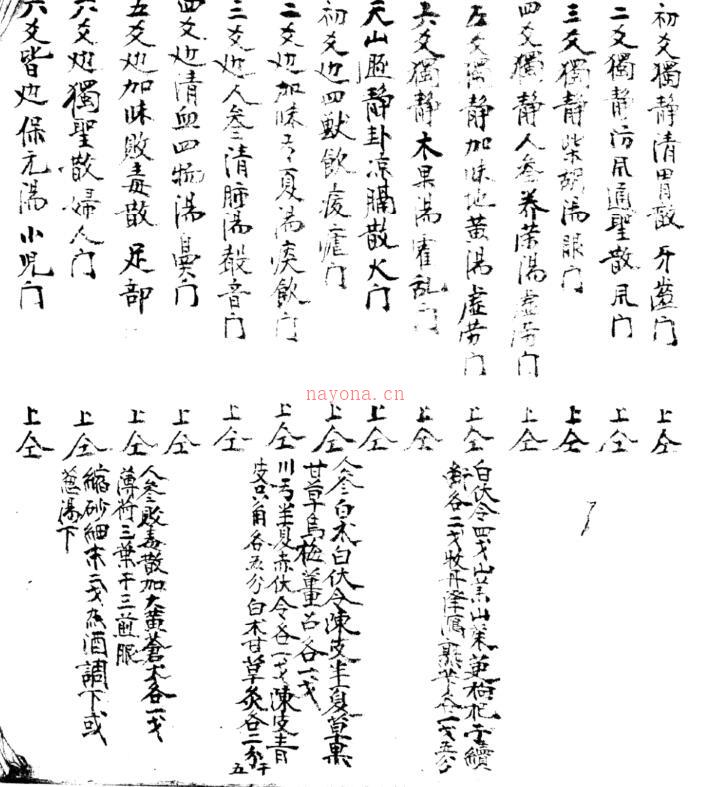 初爻獨静清胃散牙齒门 上仝
二爻獨静防風通聖散風门 上仝
三爻獨静柴胡湯眼门 上仝
四爻獨静人叄养荣湯虚劳门 上仝
五爻獨静加味地黄湯虚劳门 上仝
白伏令四戈山茱山藥更枸杞子續
各二戈牧丹澤瀉 各一戈五分
六爻獨静木果湯霍乱门 上仝
天山遯静卦凉膈散火门 上仝
初爻边四獸飲痎瘧门 上仝
人叄白术白伏令陳皮半夏草果
甘草烏梅薑召各一戈
二爻边加味芎夏湯痰飲门 上仝
川芎半夏赤伏令各一戈陳皮青
皮只角各五分白术甘草炙各二分
干五
三爻边人叄清肺湯聲音门 上仝
四爻边清血四物湯鼻门 上仝
五爻边加味敗毒散足部 上仝
人叄敗毒散加大黄蒼术各一戈
薄荷三葉干三煎服
六爻边獨聖散婦人门 上仝
縮砂細末二戈热酒調下或
葱湯下
六爻皆边保元湯小児门 上仝
nayona.cn